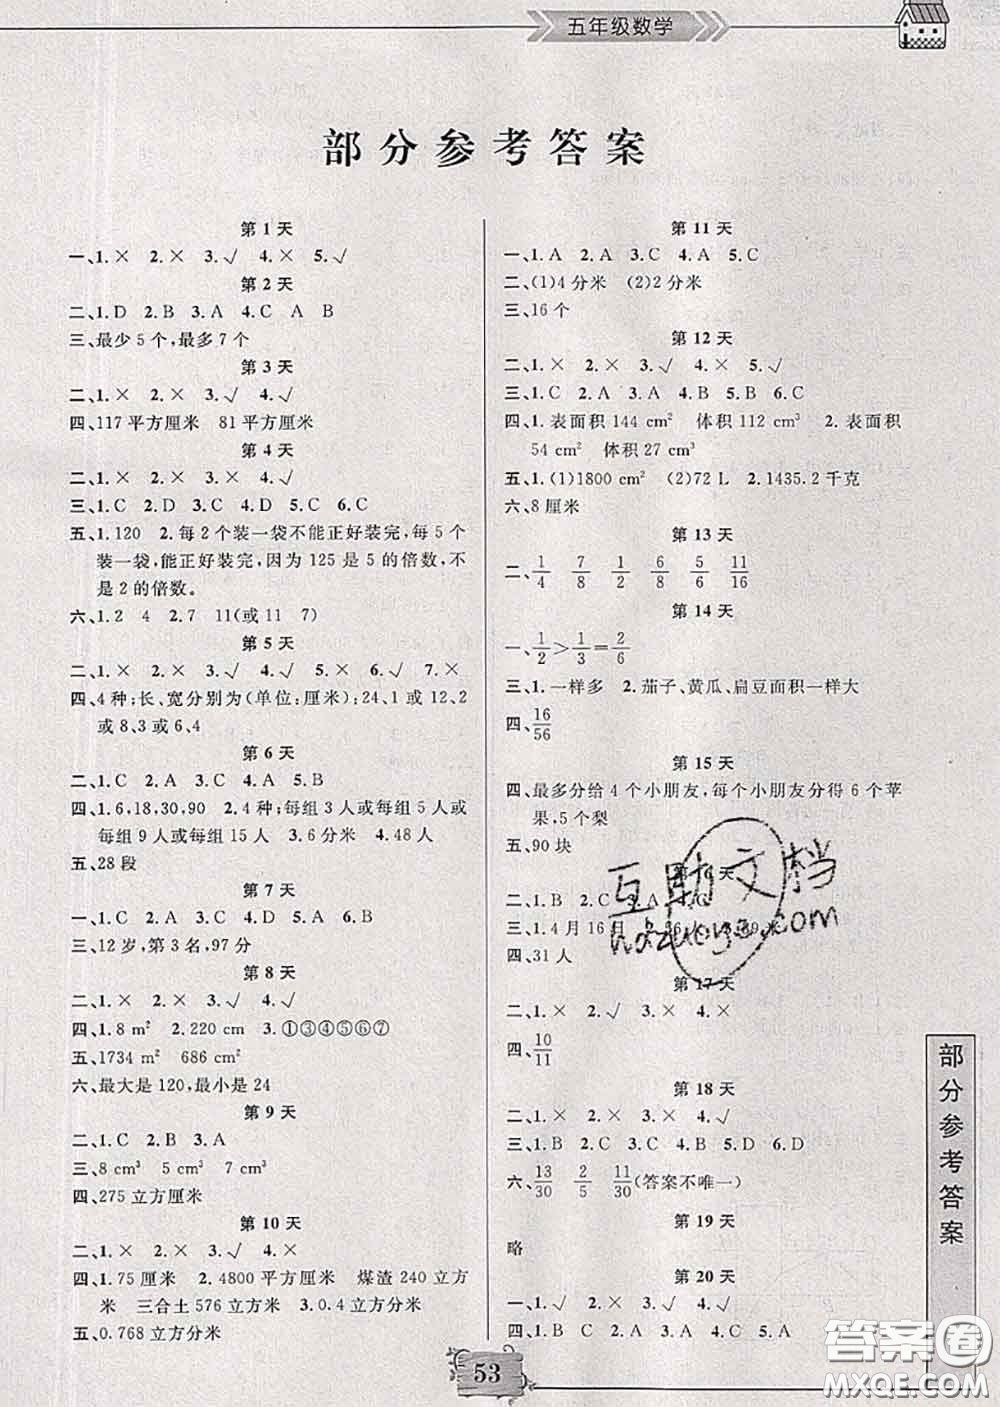 五年级数学
部分参考答案
第1天
一、1.× 2.× 3.√ 4.× 5.√
第2天
二、1.D 2.B 3.A 4.C A B
三、最少5个,最多7个
第3天
二、1.× 2.× 3.√ 4.√
四、117平方厘米 81平方厘米
第4天
二、1.× 2.× 3.× 4.√
三、1.C 2.D 3.C 4.D 5.C
五、1.120 2.每2个装一袋不能正好装完,每5个
装一袋,能正好装完,因为125是5的倍数,不
是2的倍数。
六、1.2 4 2.7 11(或11 7)
第5天
二、1.× 2.× 3.√ 4.√ 5.× 6.√ 7.×
四、4种;长、宽分别为(单位:厘米):24、1或12、2
或8、3或6、4
第6天
二、1.C 2.A 3.C 4.A 5.B
四、1.6,18,30,90 2.4种;每组3人或每组5人或
每组9人或每组15人 3.6分米 4.48人
五、28段
第7天
一、1.C 2.A 3.C 4.D 5.A 6.C
三、12岁,第3名,97分
第8天
二、1.× 2.× 3.√ 4.√
四、1.8 m² 2.220 cm 3.①③④⑤⑥⑦
五、1734 m² 686 cm²
六、最大是120,最小是24
第9天
二、1.C 2.B 3.A
三、8 cm³ 5 cm³ 7 cm³
四、275立方厘米
第10天
二、1.× 2.× 3.√ 4.×
四、1.75厘米 2.4800平方厘米 煤渣240立方
米 三合土576立方米 3.0.4立方分米
五、0.768立方分米
第11天
一、1.A 2.A 3.C 4.A 5.C
二、(1)4分米 (2)2分米
三、16个
第12天
二、1.× 2.× 3.√ 4.× 5.√
三、1.C 2.A 3.A 4.B 5.B
四、1.表面积144 cm² 体积112 cm³ 2.表面积
54 cm² 体积27 cm³
五、1.(1)1800 cm² (2)72 L 2.1435.2千克
六、8厘米
第13天
二、1/4 7/8 1/2 6/8 5/6 11/16
第14天
一、1/2>1/3=2/6
三、1.一样多 2.茄子、黄瓜、扁豆面积一样大
四、16/56
第15天
四、最多分给4个小朋友,每个小朋友分得6个苹
果,5个梨
五、90块
天
二、1.B 2.C 3.A 4.C
三、1.4月16日
四、31人
第17天
二、1.× 2.√ 3.× 4.×
四、10/11
第18天
二、1.× 2.× 3.× 4.√
三、1.D 2.C 3.A 4.B 5.D 6.D
六、13/30 2/5 11/30(答案不唯一)
第19天
略
第20天
一、1.√ 2.× 3.√ 4.√ 5.√
四、1.B C 2.B 3.C 4.A 5.C
互助文档
hdzuoye.com
部分参考答案
答案圈
MXQE.COM
53